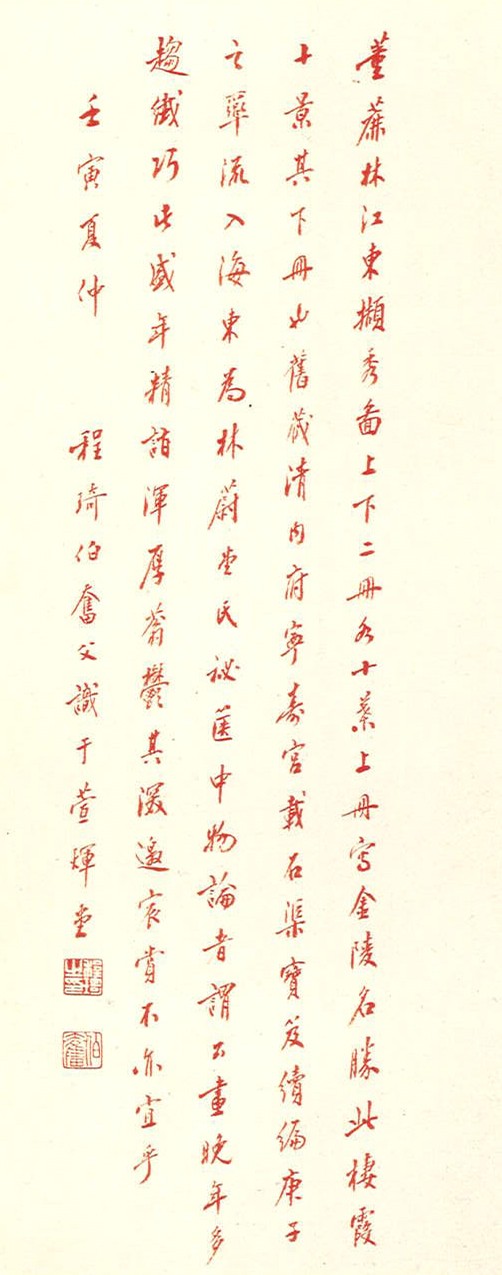 董蔗林江東擷秀畵上下二冊各十葉上冊寫金陵名勝此棲霞
十景其下冊也舊藏清内府寧壽宮載石渠寶笈續編庚子
之犖流入海東為林蔚堂氏祕匧中物論者謂公畫晚年多
趨纖巧此盛年精詣渾厚蓊鬱其深邀宸賞不亦宜乎
壬寅夏仲 程琦伯奮父識于萱輝堂
伯奮